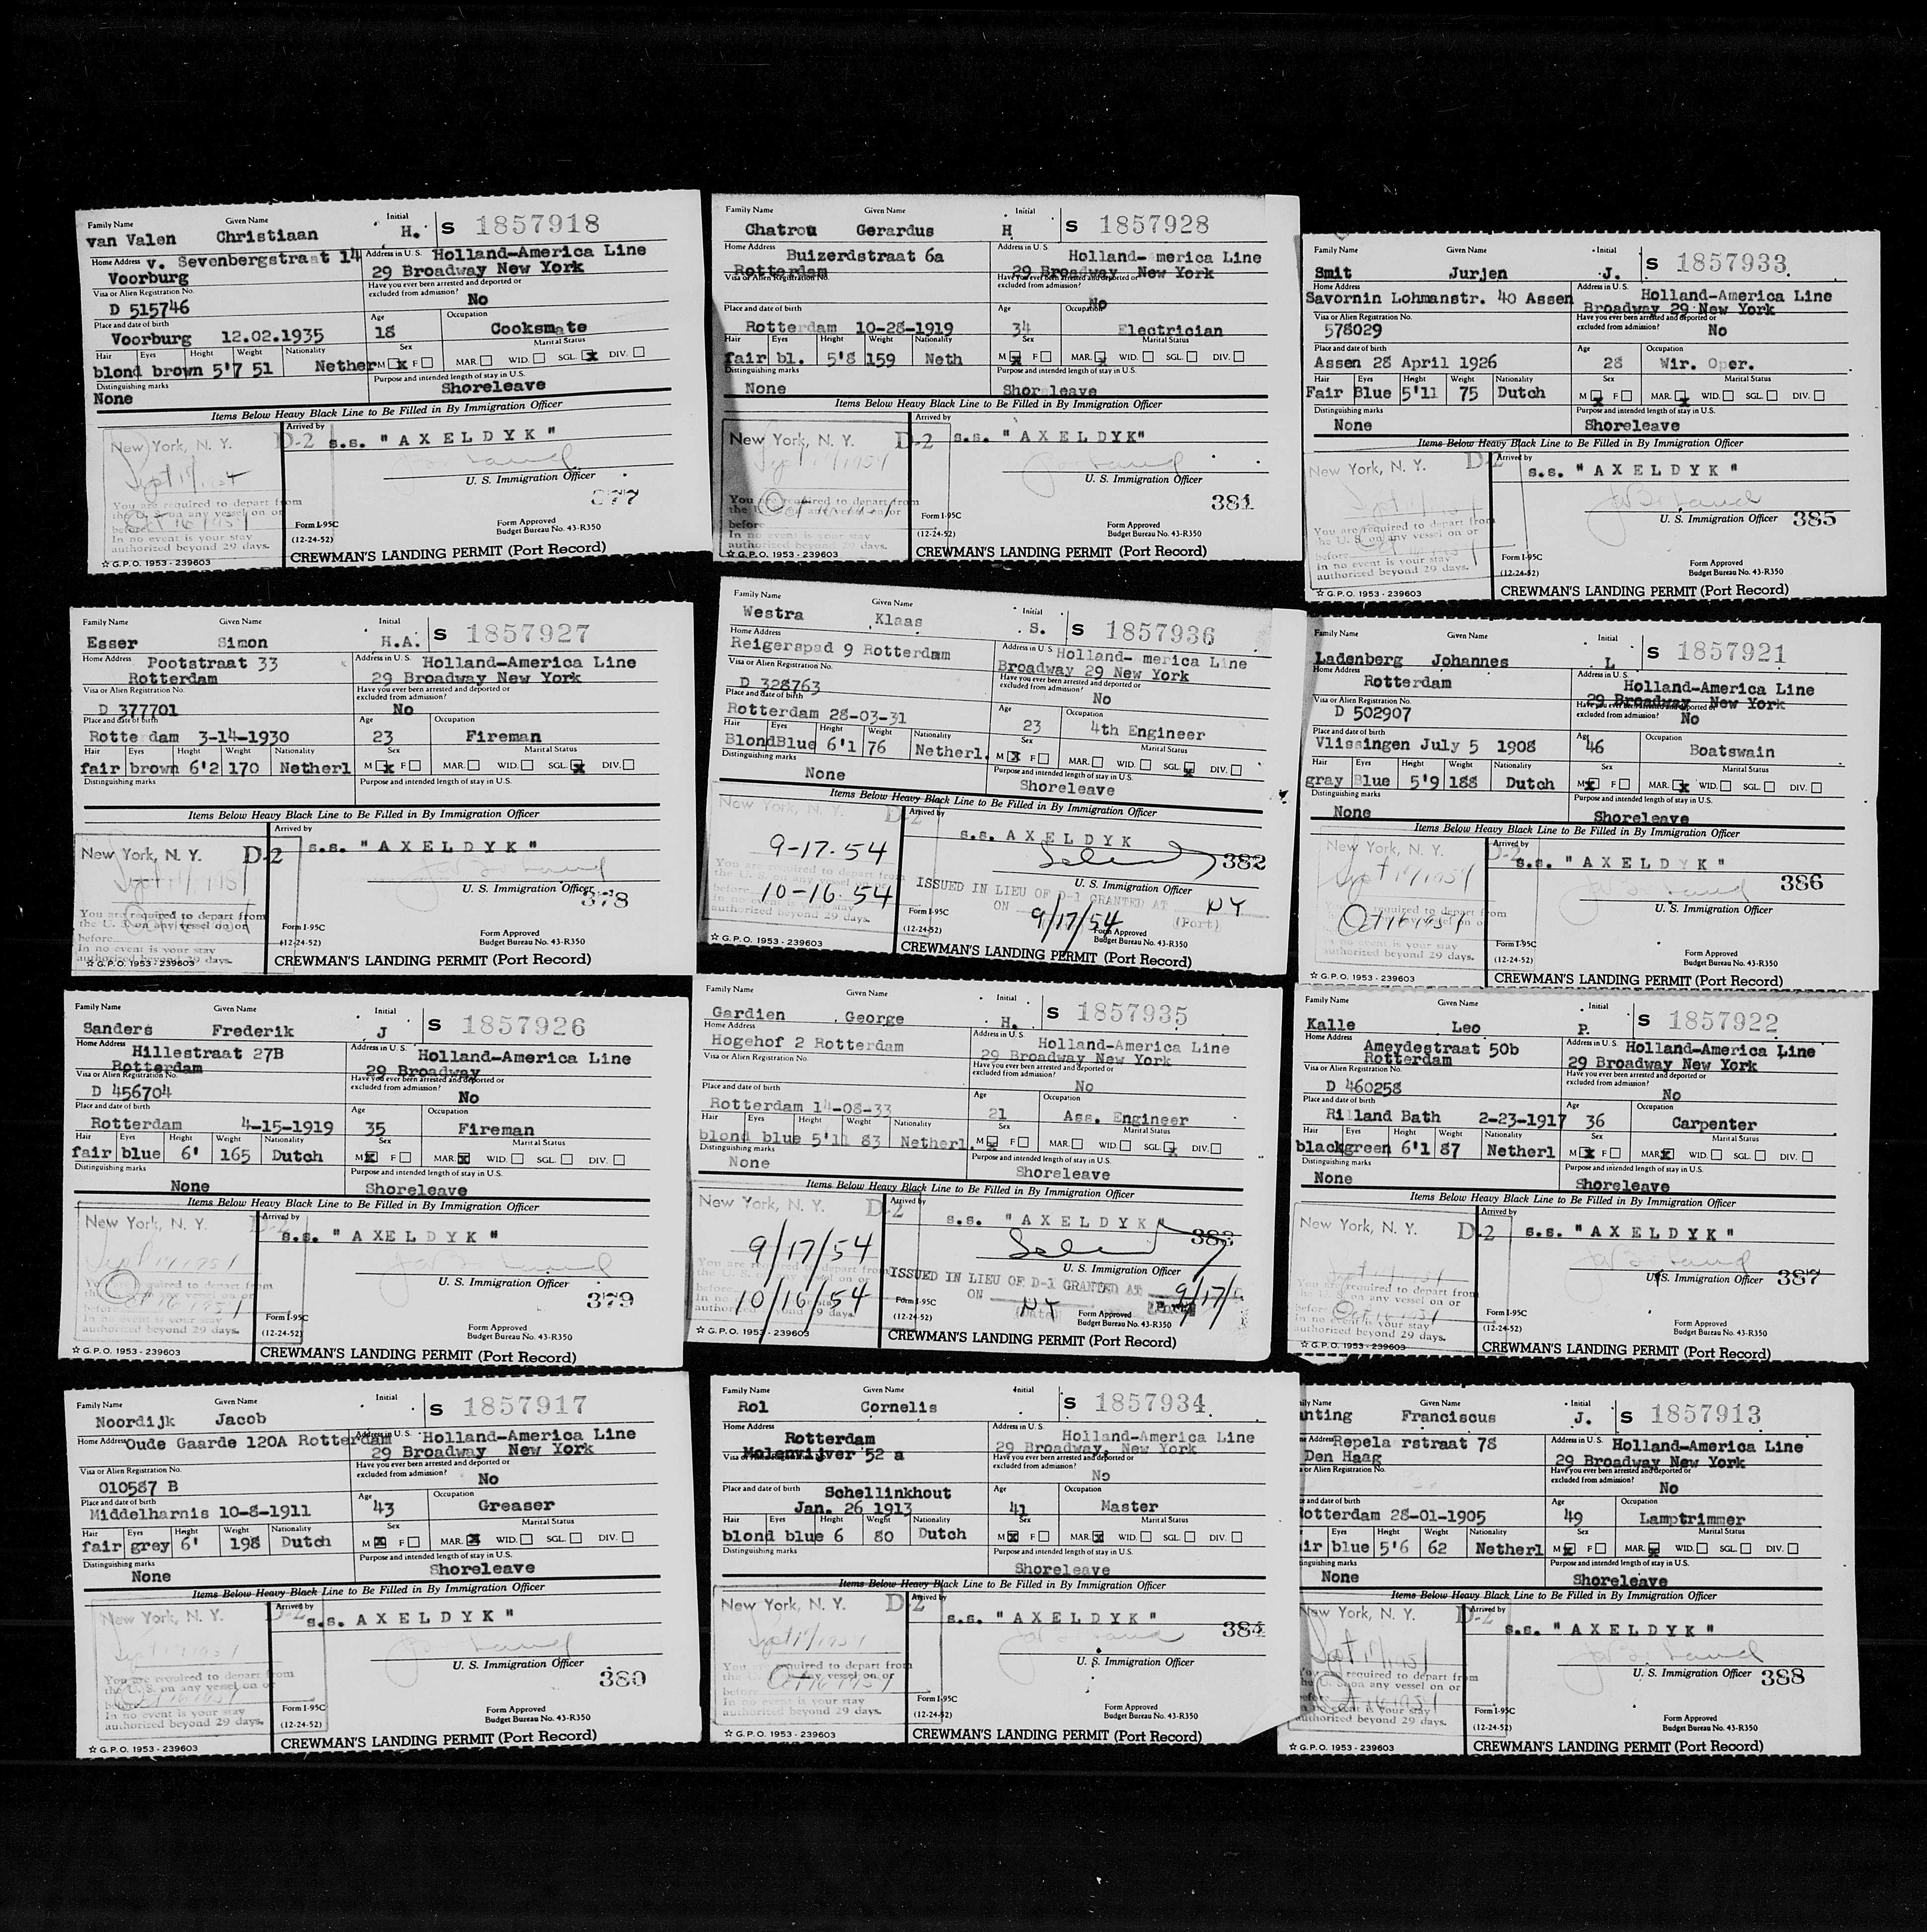 Family Name Given Name Initial
van Valen Christiaan H. S 1857918
Home Address v. Sevenbergstraat 14 Address in U.S. Holland-America Line
Voorburg 29 Broadway New York
Visa or Alien Registration No. Have you ever been arrested and deported or excluded from admission?
D 515746 No
Place and date of birth Age Occupation
Voorburg 12.02.1935 18 Cooksmate
Hair Eyes Height Weight Nationality Sex Marital Status
blond brown 5'7 51 Nether M x F MAR. WID. SGL. x DIV.
Distinguishing marks Purpose and intended length of stay in U.S.
None Shoreleave
Items Below Heavy Black Line to Be Filled in By Immigration Officer
New York, N. Y. D-2 Arrived by
s.s. "AXELDYK"
U. S. Immigration Officer
377
You are required to depart from
the U. S. on any vessel on or
before
In no event is your stay
authorized beyond 29 days.
Form I-95C
(12-24-52)
Form Approved
Budget Bureau No. 43-R350
☆ G.P.O. 1953 - 239603
CREWMAN'S LANDING PERMIT (Port Record)
Family Name Given Name Initial
Esser Simon H.A. S 1857927
Home Address Pootstraat 33 Address in U.S. Holland-America Line
Rotterdam 29 Broadway New York
Visa or Alien Registration No. Have you ever been arrested and deported or excluded from admission?
D 377701 No
Place and date of birth Age Occupation
Rotterdam 3-14-1930 23 Fireman
Hair Eyes Height Weight Nationality Sex Marital Status
fair brown 6'2 170 Netherl M x F MAR. WID. SGL. x DIV.
Distinguishing marks Purpose and intended length of stay in U.S.
Items Below Heavy Black Line to Be Filled in By Immigration Officer
New York, N. Y. D-2 Arrived by
s.s. "AXELDYK"
U. S. Immigration Officer
378
You are required to depart from
the U. S. on any vessel on or
before
In no event is your stay
authorized beyond 29 days.
Form I-95C
(12-24-52)
Form Approved
Budget Bureau No. 43-R350
☆ G.P.O. 1953 - 239603
CREWMAN'S LANDING PERMIT (Port Record)
Family Name Given Name Initial
Sanders Frederik J S 1857926
Home Address Hillestraat 27B Address in U.S. Holland-America Line
Rotterdam 29 Broadway
Visa or Alien Registration No. Have you ever been arrested and deported or excluded from admission?
D 456704 No
Place and date of birth Age Occupation
Rotterdam 4-15-1919 35 Fireman
Hair Eyes Height Weight Nationality Sex Marital Status
fair blue 6' 165 Dutch M x F MAR. x WID. SGL. DIV.
Distinguishing marks Purpose and intended length of stay in U.S.
None Shoreleave
Items Below Heavy Black Line to Be Filled in By Immigration Officer
New York, N. Y. D-2 Arrived by
s.s. "AXELDYK"
U. S. Immigration Officer
379
You are required to depart from
the U. S. on any vessel on or
before
In no event is your stay
authorized beyond 29 days.
Form I-95C
(12-24-52)
Form Approved
Budget Bureau No. 43-R350
☆ G.P.O. 1953 - 239603
CREWMAN'S LANDING PERMIT (Port Record)
Family Name Given Name Initial
Noordijk Jacob S 1857917
Home Address Oude Gaarde 120A Rotterdam Address in U.S. Holland-America Line
29 Broadway New York
Visa or Alien Registration No. Have you ever been arrested and deported or excluded from admission?
010587 B No
Place and date of birth Age Occupation
Middelharnis 10-8-1911 43 Greaser
Hair Eyes Height Weight Nationality Sex Marital Status
fair grey 6' 198 Dutch M x F MAR. x WID. SGL. DIV.
Distinguishing marks Purpose and intended length of stay in U.S.
None Shoreleave
Items Below Heavy Black Line to Be Filled in By Immigration Officer
New York, N. Y. D-2 Arrived by
s.s. AXELDYK"
U. S. Immigration Officer
380
You are required to depart from
the U. S. on any vessel on or
before
In no event is your stay
authorized beyond 29 days.
Form I-95C
(12-24-52)
Form Approved
Budget Bureau No. 43-R350
☆ G.P.O. 1953 - 239603
CREWMAN'S LANDING PERMIT (Port Record)
Family Name Given Name Initial
Chatrou Gerardus H S 1857928
Home Address Buizerdstraat 6a Address in U.S. Holland-America Line
Rotterdam 29 Broadway New York
Visa or Alien Registration No. Have you ever been arrested and deported or excluded from admission?
No
Place and date of birth Age Occupation
Rotterdam 10-28-1919 34 Electrician
Hair Eyes Height Weight Nationality Sex Marital Status
fair bl. 5'8 159 Neth M x F MAR. x WID. SGL. DIV.
Distinguishing marks Purpose and intended length of stay in U.S.
None Shoreleave
Items Below Heavy Black Line to Be Filled in By Immigration Officer
New York, N. Y. D-2 Arrived by
s.s. "AXELDYK"
U. S. Immigration Officer
381
You are required to depart from
the U. S. on any vessel on or
before
In no event is your stay
authorized beyond 29 days.
Form I-95C
(12-24-52)
Form Approved
Budget Bureau No. 43-R350
☆ G.P.O. 1953 - 239603
CREWMAN'S LANDING PERMIT (Port Record)
Family Name Given Name Initial
Westra Klaas S. S 1857936
Home Address Address in U.S. Holland-America Line
Reigerspad 9 Rotterdam Broadway 29 New York
Visa or Alien Registration No. Have you ever been arrested and deported or excluded from admission?
D 328763 No
Place and date of birth Age Occupation
Rotterdam 28-03-31 23 4th Engineer
Hair Eyes Height Weight Nationality Sex Marital Status
Blond Blue 6'1 76 Netherl. M x F MAR. WID. SGL. x DIV.
Distinguishing marks Purpose and intended length of stay in U.S.
None Shoreleave
Items Below Heavy Black Line to Be Filled in By Immigration Officer
New York, N. Y. D-2 Arrived by
s.s. AXELDYK
9-17-54 382
U. S. Immigration Officer
You are required to depart from
the U. S. on any vessel on or
before 10-16-54
In no event is your stay
authorized beyond 29 days.
ISSUED IN LIEU OF D-1 GRANTED AT NY
ON 9/17/54 (Port)
Form I-95C
(12-24-52)
Form Approved
Budget Bureau No. 43-R350
☆ G.P.O. 1953 - 239603
CREWMAN'S LANDING PERMIT (Port Record)
Family Name Given Name Initial
Gardien George H. S 1857935
Home Address Address in U.S. Holland-America Line
Hogehof 2 Rotterdam 29 Broadway New York
Visa or Alien Registration No. Have you ever been arrested and deported or excluded from admission?
No
Place and date of birth Age Occupation
Rotterdam 14-08-33 21 Ass. Engineer
Hair Eyes Height Weight Nationality Sex Marital Status
blond blue 5'11 83 Netherl. M x F MAR. WID. SGL. x DIV.
Distinguishing marks Purpose and intended length of stay in U.S.
None Shoreleave
Items Below Heavy Black Line to Be Filled in By Immigration Officer
New York, N. Y. D-2 Arrived by
s.s. "AXELDYK"
9/17/54 383
U. S. Immigration Officer
You are required to depart from
the U. S. on any vessel on or
before 10/16/54
In no event is your stay
authorized beyond 29 days.
ISSUED IN LIEU OF D-1 GRANTED AT 9/17/
ON NY
(Date)
Form I-95C
(12-24-52)
Form Approved
Budget Bureau No. 43-R350
☆ G.P.O. 1953 - 239603
CREWMAN'S LANDING PERMIT (Port Record)
Family Name Given Name Initial
Rol Cornelis S 1857934
Home Address Rotterdam Address in U.S. Holland-America Line
Molenvijver 52 a 29 Broadway, New York
Visa or Alien Registration No. Have you ever been arrested and deported or excluded from admission?
No
Place and date of birth Schellinkhout Age Occupation
Jan. 26 1913 41 Master
Hair Eyes Height Weight Nationality Sex Marital Status
blond blue 6 80 Dutch M x F MAR. x WID. SGL. DIV.
Distinguishing marks Purpose and intended length of stay in U.S.
Shoreleave
Items Below Heavy Black Line to Be Filled in By Immigration Officer
New York, N. Y. D-2 Arrived by
s.s. "AXELDYK"
384
U. S. Immigration Officer
You are required to depart from
the U. S. on any vessel on or
before
In no event is your stay
authorized beyond 29 days.
Form I-95C
(12-24-52)
Form Approved
Budget Bureau No. 43-R350
☆ G.P.O. 1953 - 239603
CREWMAN'S LANDING PERMIT (Port Record)
Family Name Given Name Initial
Smit Jurjen J. S 1857933
Home Address Address in U.S. Holland-America Line
Savornin Lohmanstr. 40 Assen Broadway 29 New York
Visa or Alien Registration No. Have you ever been arrested and deported or excluded from admission?
578029 No
Place and date of birth Age Occupation
Assen 28 April 1926 28 Wir. Oper.
Hair Eyes Height Weight Nationality Sex Marital Status
Fair Blue 5'11 75 Dutch M x F MAR. x WID. SGL. DIV.
Distinguishing marks Purpose and intended length of stay in U.S.
None Shoreleave
Items Below Heavy Black Line to Be Filled in By Immigration Officer
New York, N. Y. D-2 Arrived by
s.s. "AXELDYK"
U. S. Immigration Officer 385
You are required to depart from
the U. S. on any vessel on or
before
In no event is your stay
authorized beyond 29 days.
Form I-95C
(12-24-52)
Form Approved
Budget Bureau No. 43-R350
☆ G.P.O. 1953 - 239603
CREWMAN'S LANDING PERMIT (Port Record)
Family Name Given Name Initial
Ladenberg Johannes L S 1857921
Home Address Address in U.S.
Rotterdam Holland-America Line
29 Broadway New York
Visa or Alien Registration No. Have you ever been arrested and deported or excluded from admission?
D 502907 No
Place and date of birth Age Occupation
Vlissingen July 5 1908 46 Boatswain
Hair Eyes Height Weight Nationality Sex Marital Status
gray Blue 5'9 188 Dutch M x F MAR. x WID. SGL. DIV.
Distinguishing marks Purpose and intended length of stay in U.S.
None Shoreleave
Items Below Heavy Black Line to Be Filled in By Immigration Officer
New York, N. Y. D-2 Arrived by
s.s. "AXELDYK"
386
U. S. Immigration Officer
You are required to depart from
the U. S. on any vessel on or
In no event is your stay
authorized beyond 29 days.
Form I-95C
(12-24-52)
Form Approved
Budget Bureau No. 43-R350
☆ G.P.O. 1953 - 239603
CREWMAN'S LANDING PERMIT (Port Record)
Family Name Given Name Initial
Kalle Leo P. S 1857922
Home Address Ameydestraat 50b Address in U.S. Holland-America Line
Rotterdam 29 Broadway New York
Visa or Alien Registration No. Have you ever been arrested and deported or excluded from admission?
D 460258 No
Place and date of birth Age Occupation
Rilland Bath 2-23-1917 36 Carpenter
Hair Eyes Height Weight Nationality Sex Marital Status
black green 6'1 87 Netherl M x F MAR. x WID. SGL. DIV.
Distinguishing marks Purpose and intended length of stay in U.S.
None Shoreleave
Items Below Heavy Black Line to Be Filled in By Immigration Officer
New York, N. Y. D-2 Arrived by
s.s. "AXELDYK"
U. S. Immigration Officer 387
You are required to depart from
the U. S. on any vessel on or
before
In no event is your stay
authorized beyond 29 days.
Form I-95C
(12-24-52)
Form Approved
Budget Bureau No. 43-R350
☆ G.P.O. 1953 - 239603
CREWMAN'S LANDING PERMIT (Port Record)
ily Name Given Name Initial
nting Franciscus J. S 1857913
Address Repela rstraat 78 Address in U.S. Holland-America Line
Den Haag 29 Broadway New York
or Alien Registration No. Have you ever been arrested and deported or excluded from admission?
No
and date of birth Age Occupation
otterdam 28-01-1905 49 Lamptrimmer
Eyes Height Weight Nationality Sex Marital Status
ir blue 5'6 62 Netherl M x F MAR. x WID. SGL. DIV.
inguishing marks Purpose and intended length of stay in U.S.
None Shoreleave
Items Below Heavy Black Line to Be Filled in By Immigration Officer
New York, N. Y. D-2 Arrived by
s.s. "AXELDYK"
U. S. Immigration Officer 388
You are required to depart from
the U. S. on any vessel on or
before
In no event is your stay
authorized beyond 29 days.
Form I-95C
(12-24-52)
Form Approved
Budget Bureau No. 43-R350
☆ G.P.O. 1953 - 239603
CREWMAN'S LANDING PERMIT (Port Record)